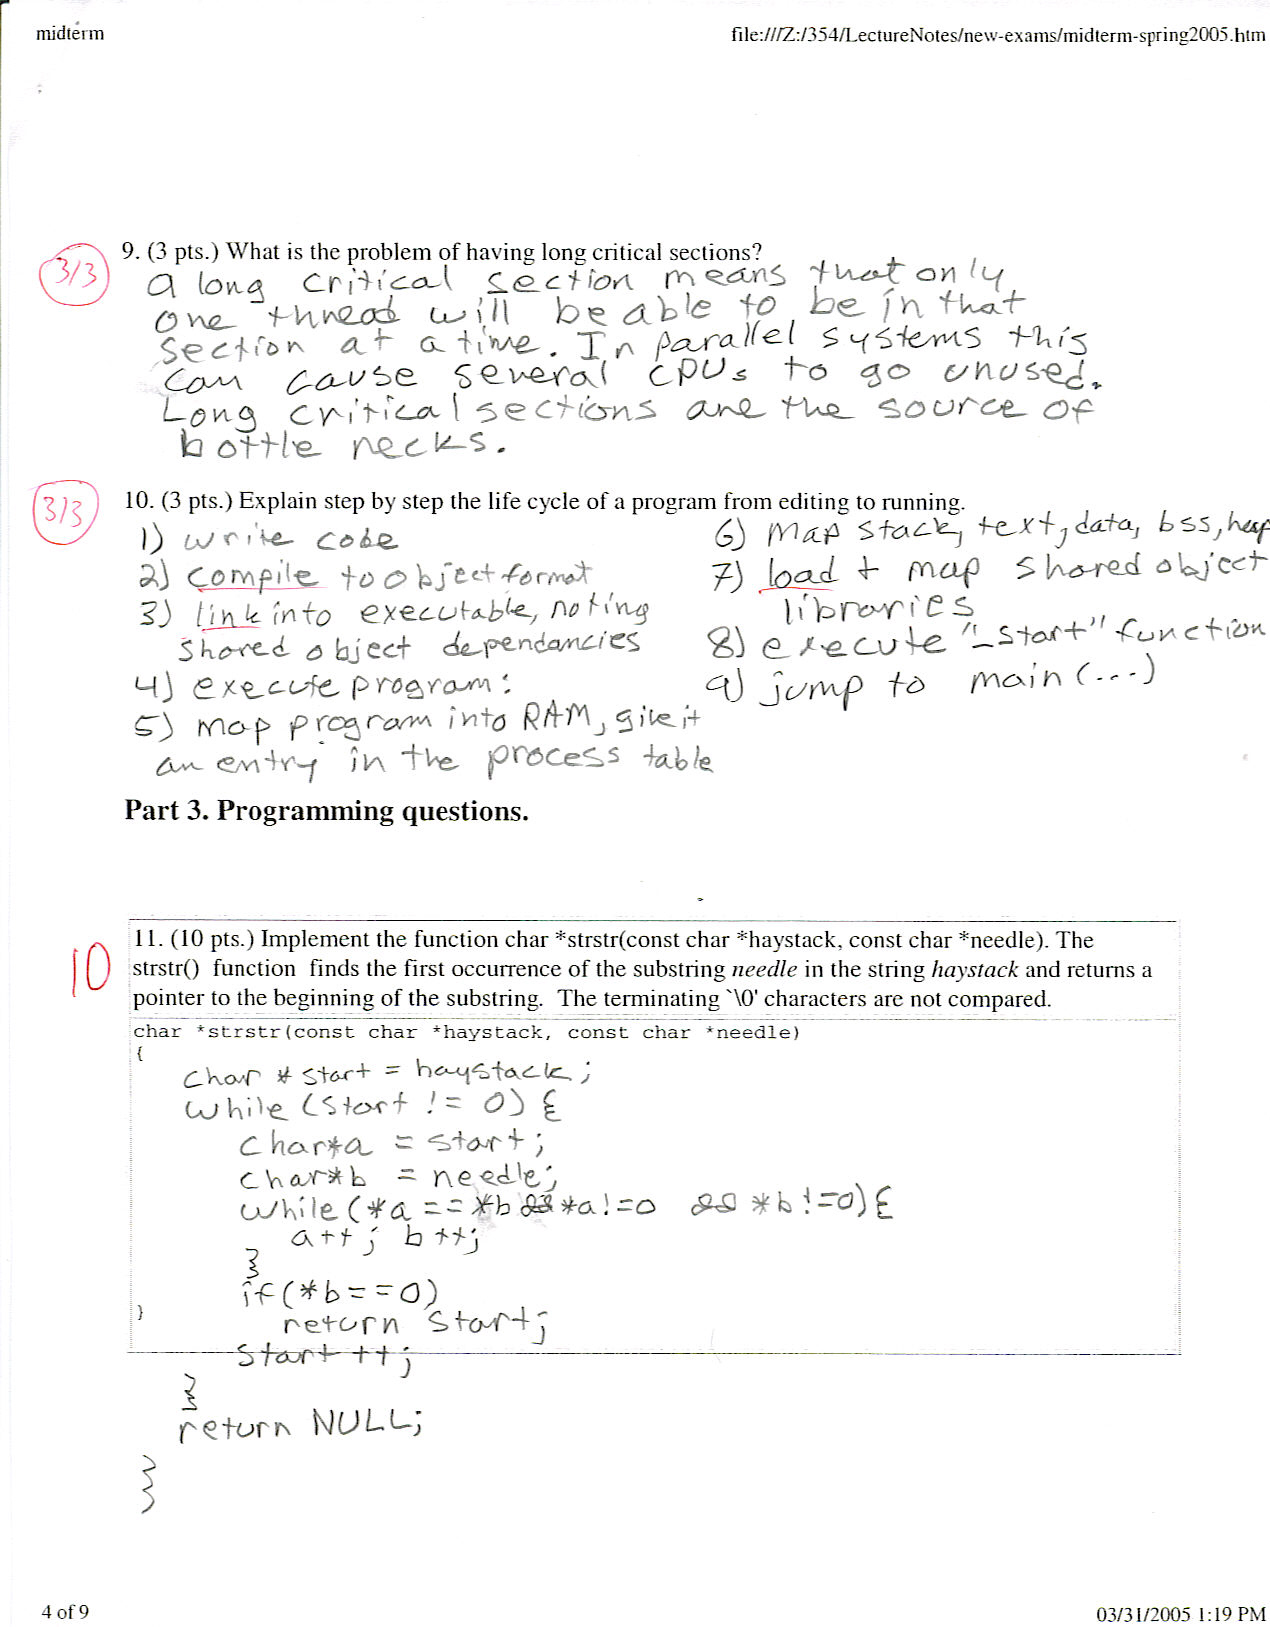 midterm
file:///Z:/354/LectureNotes/new-exams/midterm-spring2005.htm
3/3
9. (3 pts.) What is the problem of having long critical sections?
A long critical section means that only
one thread will be able to be in that
section at a time. In parallel systems this
can cause several CPUs to go unused.
Long critical sections are the source of
bottle necks.
3/3
10. (3 pts.) Explain step by step the life cycle of a program from editing to running.
1) write code
2) compile to object format
3) link into executable, noting
shared object dependancies
4) execute program:
5) map program into RAM, give it
an entry in the process table
6) map stack, text, data, bss, heap
7) load + map shared object
libraries
8) execute "_start" function
9) jump to main(...)
Part 3. Programming questions.
10
11. (10 pts.) Implement the function char *strstr(const char *haystack, const char *needle). The
strstr() function finds the first occurrence of the substring needle in the string haystack and returns a
pointer to the beginning of the substring. The terminating `\0' characters are not compared.
char *strstr(const char *haystack, const char *needle)
{
char * start = haystack;
while (start != 0) {
char*a = start;
char*b = needle;
while (*a == *b && *a!=0 && *b!=0) {
a++; b++;
}
if (*b==0)
return start;
}
start ++;
}
return NULL;
}
4 of 9
03/31/2005 1:19 PM